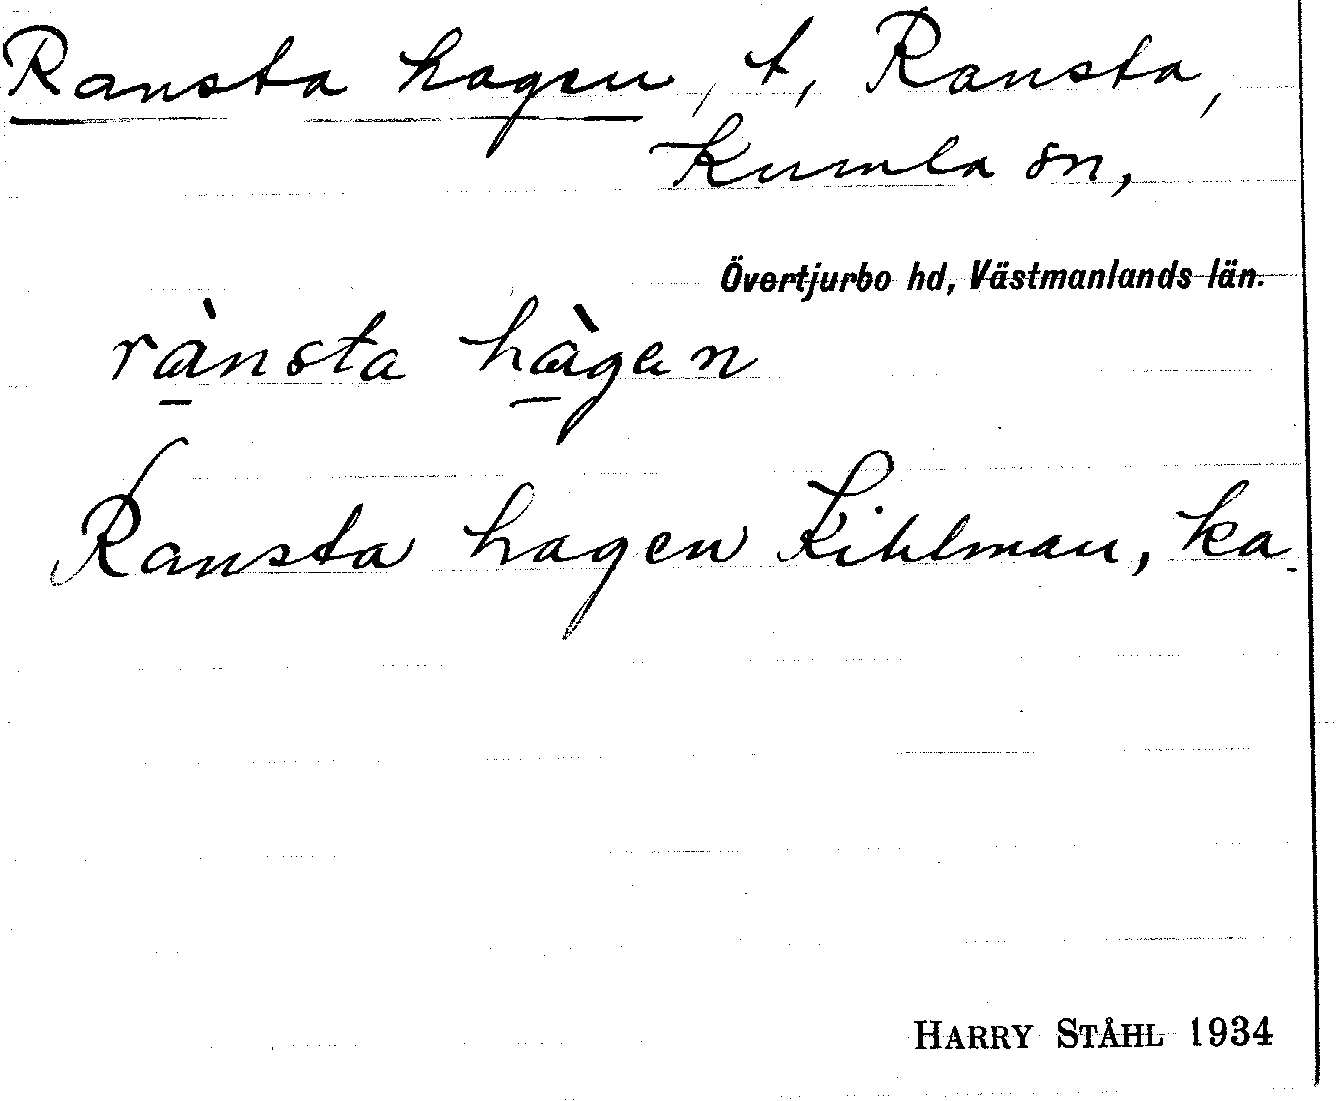 Ransta hagen, t, Ransta,
Kumla sn,
Övertjurbo hd, Västmanlands län.
rànsta hàgen
Ransta hagen Kihlman, ka.
HARRY STÅHL 1934